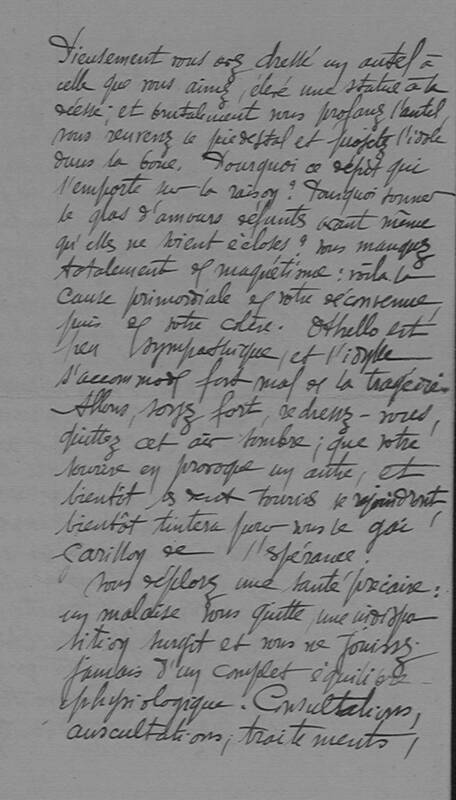 Pieusement vous avez dressé un autel à
celle que vous aimez, élevé une statue à la
déesse; et brutalement vous profanez l'autel,
vous renversez le piédestal et projetez l'idole
dans la boue. Pourquoi ce dépit qui
l'emporte sur la raison? Pourquoi sonner
le glas d'amours défunts avant même
qu'elles ne soient écloses? Vous manquez
totalement de magnétisme: voilà la
cause primordiale de votre déconvenue,
puis de votre colère. Othello est
peu sympathique, et l'idylle
s'accommode fort mal de la tragédie.
Allons, soyez fort, redressez-vous,
quittez cet air sombre; que votre
sourire en provoque un autre, et
bientôt les deux souris se rejoindront,
bientôt tintera pour vous le gai
carillon de l'espérance.
Vous déplorez une santé précaire:
un malaise vous quitte, une indispo
sition surgit et vous ne jouissez
jamais d'un complet équilibre
physiologique. Consultations,
auscultations, traitements,